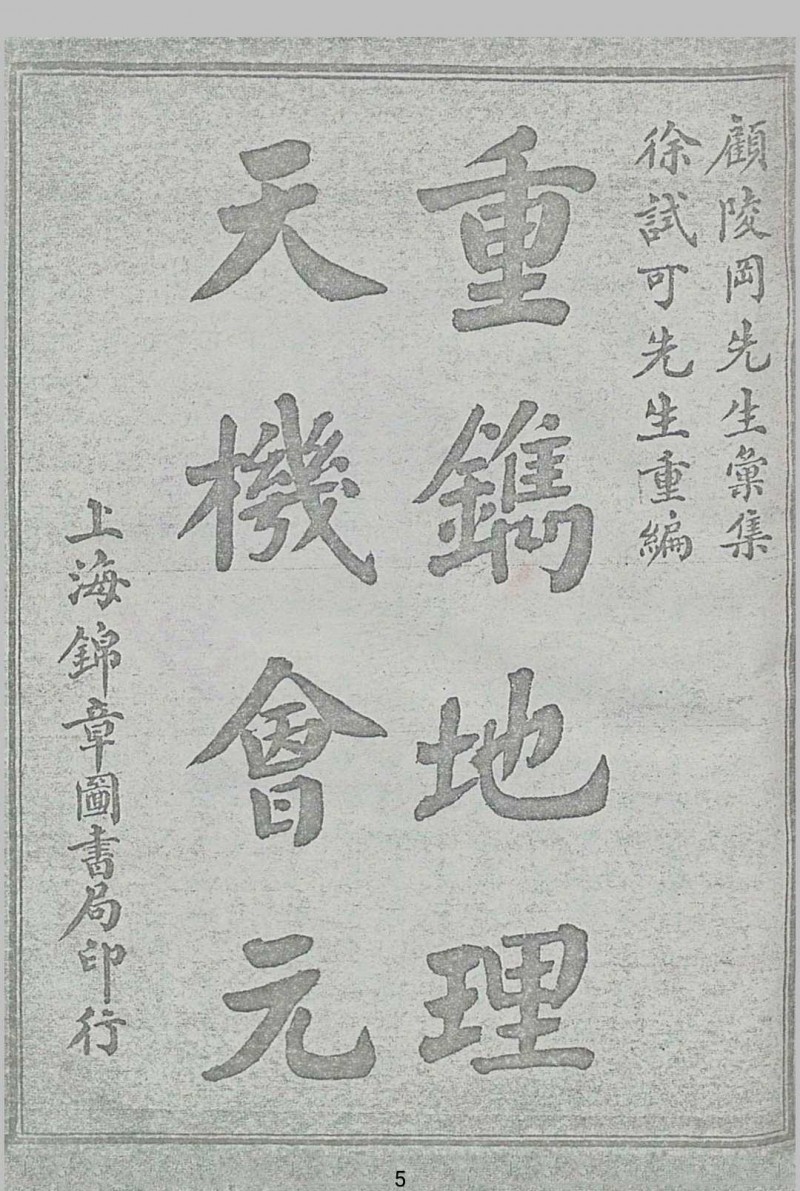 顧陵岡先生彙集
徐試可先生重編
重鐫地理
天機會元
上海錦章圖書局印行
5